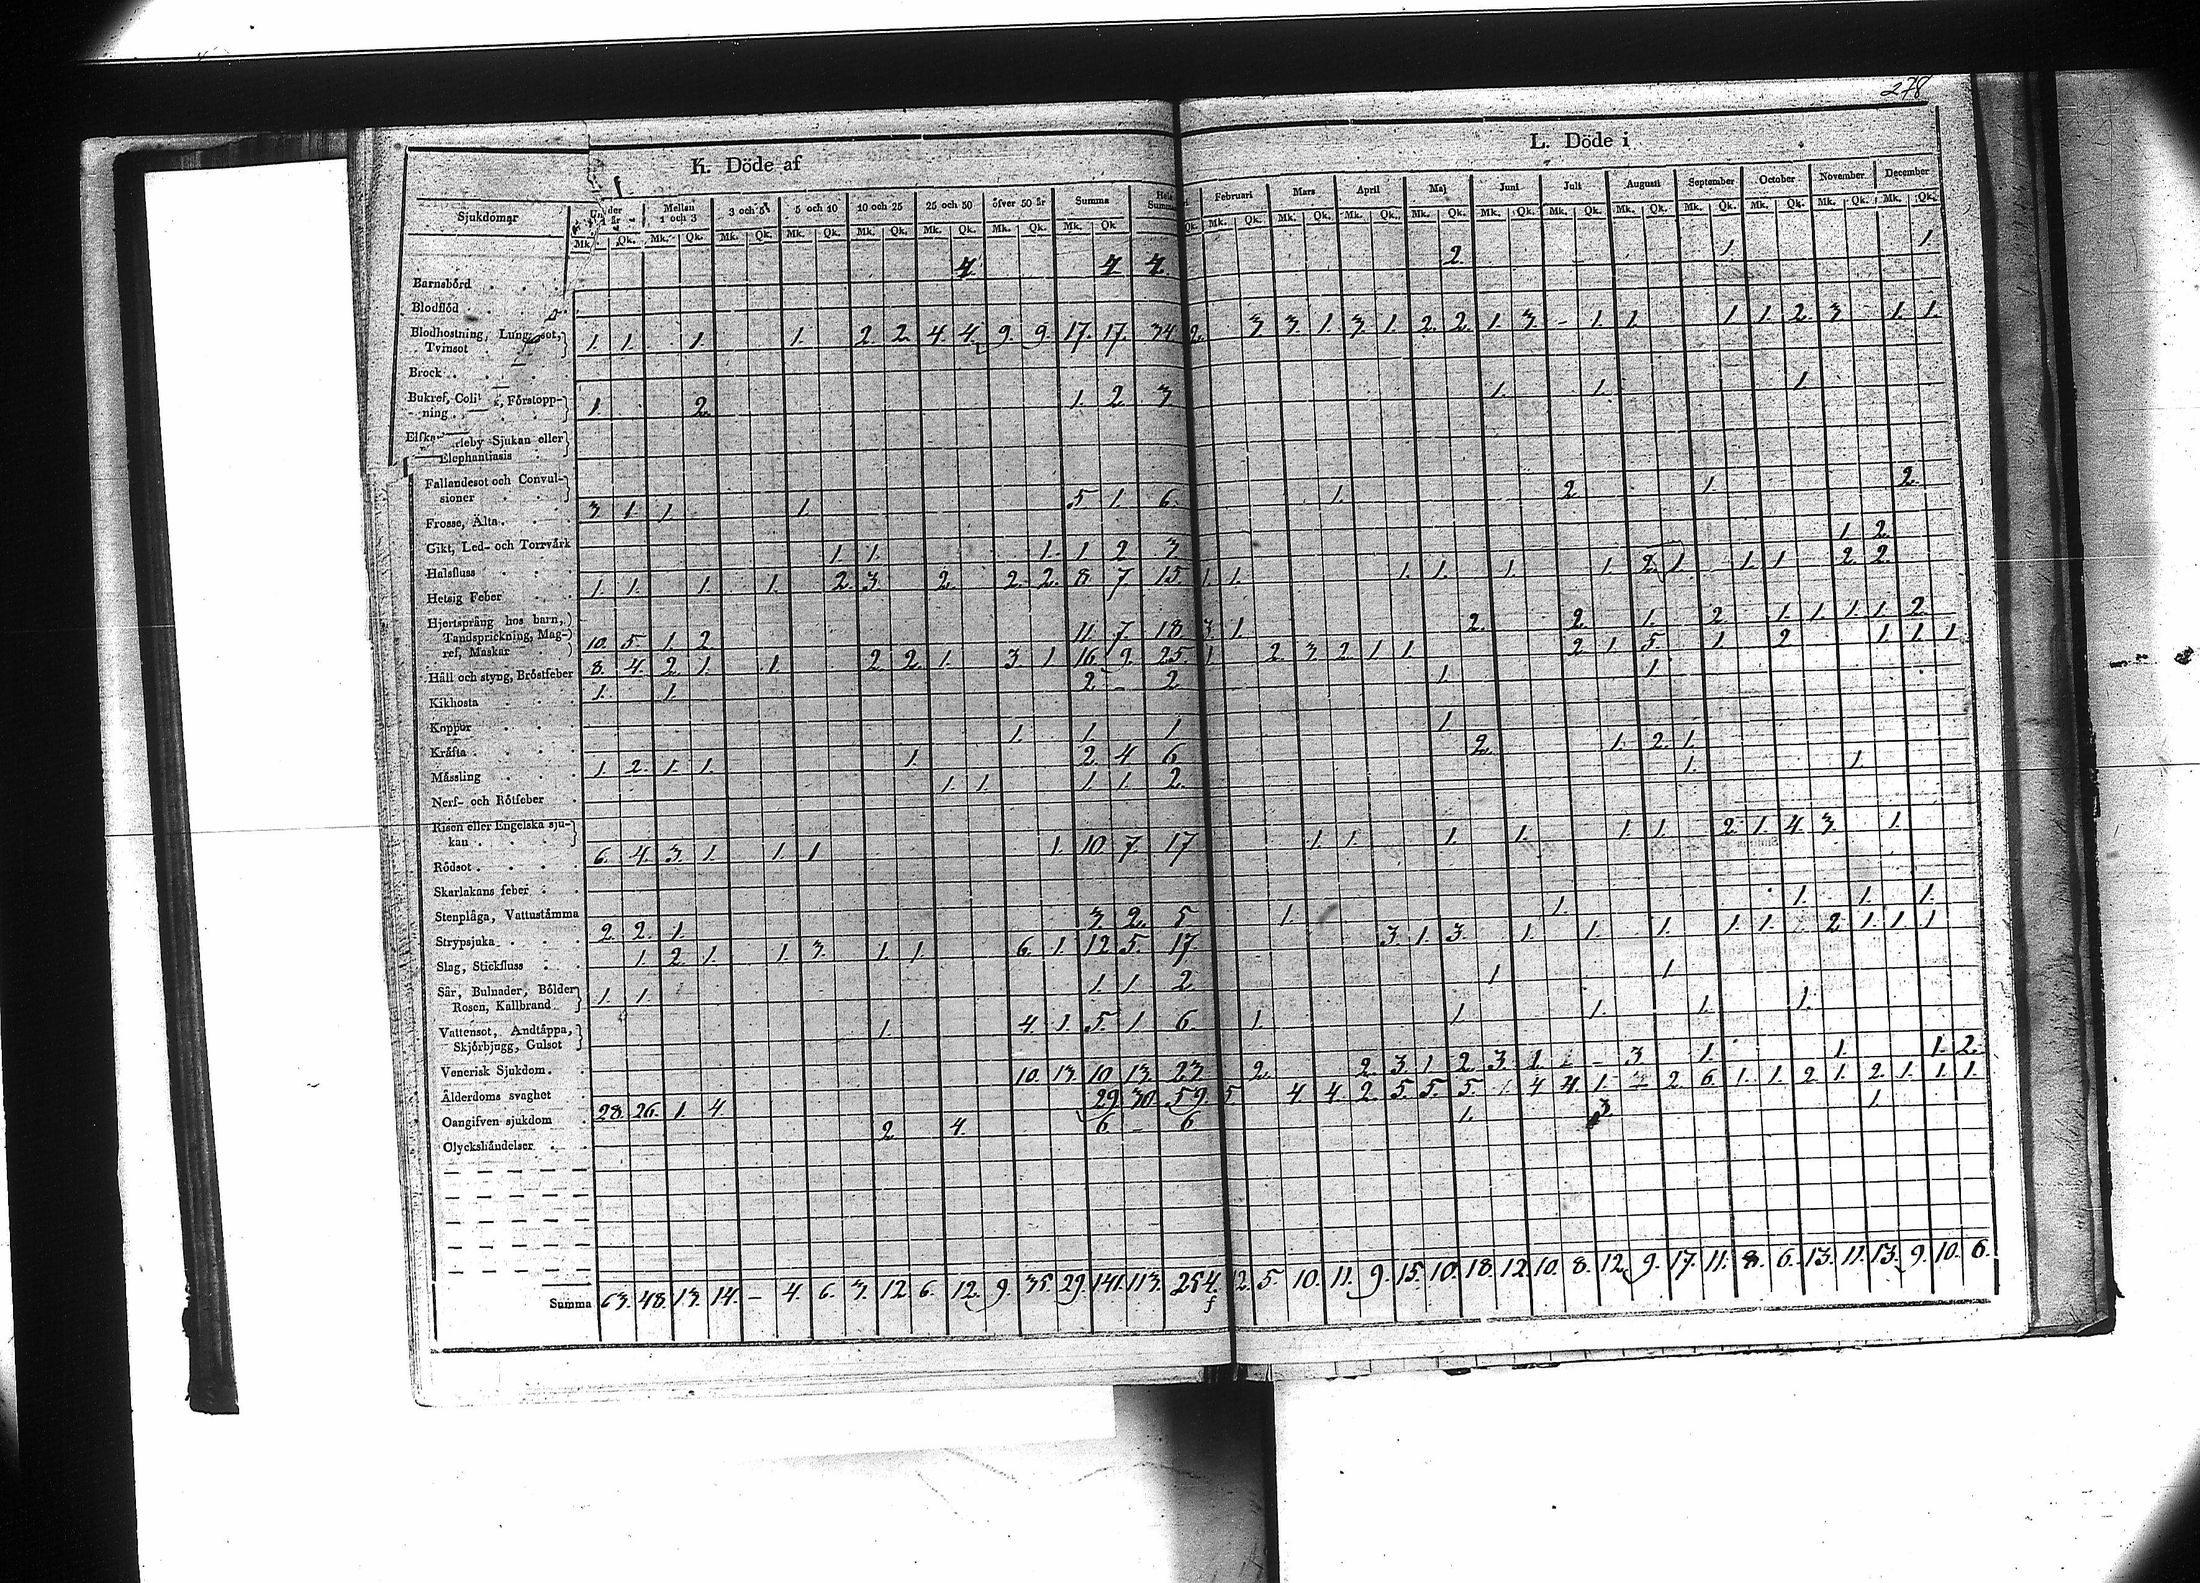 278
K. Döde af
L. Döde i
Sjukdomar Under 1 år Mellan 1 och 3 3 och 5 5 och 10 10 och 25 25 och 50 öfver 50 år Summa Hela Summa Februari Mars April Maj Juni Juli Augusti September October November December
Mk. Qk. Mk. Qk. Mk. Qk. Mk. Qk. Mk. Qk. Mk. Qk. Mk. Qk. Mk. Qk. Qk. Mk. Qk. Mk. Qk. Mk. Qk. Mk. Qk. Mk. Qk. Mk. Qk. Mk. Qk. Mk. Qk. Mk. Qk. Mk. Qk. Mk. Qk.
Barnsbörd 4 4 4 2. 1. 1.
Blodflöd
Blodhostning, Lungsot,
Tvinsot 1. 1. 1. 1. 2. 2. 4. 4. 9. 9. 17. 17. 34 2. 3 3. 1. 3. 1. 2. 2. 1. 3. - 1. 1. 1. 1. 2. 3 1. 1.
Brock
Bukref, Förstopp-
ning 1. 2. 1. 2. 3 1. 1. 1.
Sjukan eller
Elephantiasis
Fallandesot och Convul-
sioner 3. 1. 1. 1. 5 1. 6. 1. 2. 1. 2.
Frosse, Älta
Gikt, Led- och Torrvärk 1. 1. 1. 1 2 3 1 2.
Halsfluss 1. 1. 1. 1. 2. 3. 2. 2. 2. 8 7 15. 1. 1. 1. 1. 1. 1. 2. 1. 1. 1 2. 2.
Hetsig Feber
Hjertsprång hos barn,
Tandsprickning, Mag-
ref, Maskar 10. 5. 1. 2 11. 7. 18 3 1. 2. 2. 1. 2. 1. 1. 1. 1. 2.
Håll och styng, Bröstfeber 8. 4. 2. 1. 1. 2. 2. 1. 3 1. 16. 9. 25. 1. 2. 3. 2. 1. 1. 2. 1. 5. 1. 2. 1. 1. 1.
Kikhosta 1. 1. 2. - 2 1. 1.
Koppor
Kräfta 1. 1. 1. 1.
Mässling 1. 2. 1. 1. 1. 2. 4 6 2. 1. 2. 1.
Nerf- och Rötfeber 1. 1. 1. 1. 2. 1. 1.
Risen eller Engelska sju-
kan
Rödsot 6. 4. 3. 1. 1. 1 1. 10. 7. 17 1. 1. 1. 1. 1. 1. 2. 1. 4. 3. 1.
Skarlakans feber
Stenplåga, Vattustämma
Strypsjuka 2. 2. 1. 3. 2. 5 1. 1. 1. 1. 1.
Slag, Stickfluss 1. 2. 1. 1. 3. 1. 1. 6. 1. 12 5. 17 3 1. 3. 1. 1. 1. 1. 1. 2. 1. 1. 1
Sår, Bulnader, Bölder
Rosen, Kallbrand 1. 1. 1. 1 2 1 1
Vattensot, Andtäppa,
Skjörbjugg, Gulsot 1. 4. 1. 5. 1 6. 1. 1. 1. 1. 1.
Venerisk Sjukdom
Ålderdoms svaghet 10. 13. 10. 13. 23 2. 2. 3 1 2. 3. 1 - 3 1. 1. 1. 2.
Oangifven sjukdom 28. 26. 1. 4 29 30. 59. 5. 4 4. 2. 5. 5. 5. 1. 4 4. 1. 2. 6. 1. 1. 2. 1. 2. 1. 1. 1.
Olyckshändelser 2. 4. 6. - 6 1. 3 1.
Summa 63. 48. 13. 14. - 4. 6. 3. 12 6. 12. 9. 35. 29. 141. 113. 254. 12. 5. 10. 11. 9. 15. 10. 18. 12. 10. 8. 12. 9. 17. 11. 8. 6. 13. 11. 13. 9. 10. 6.